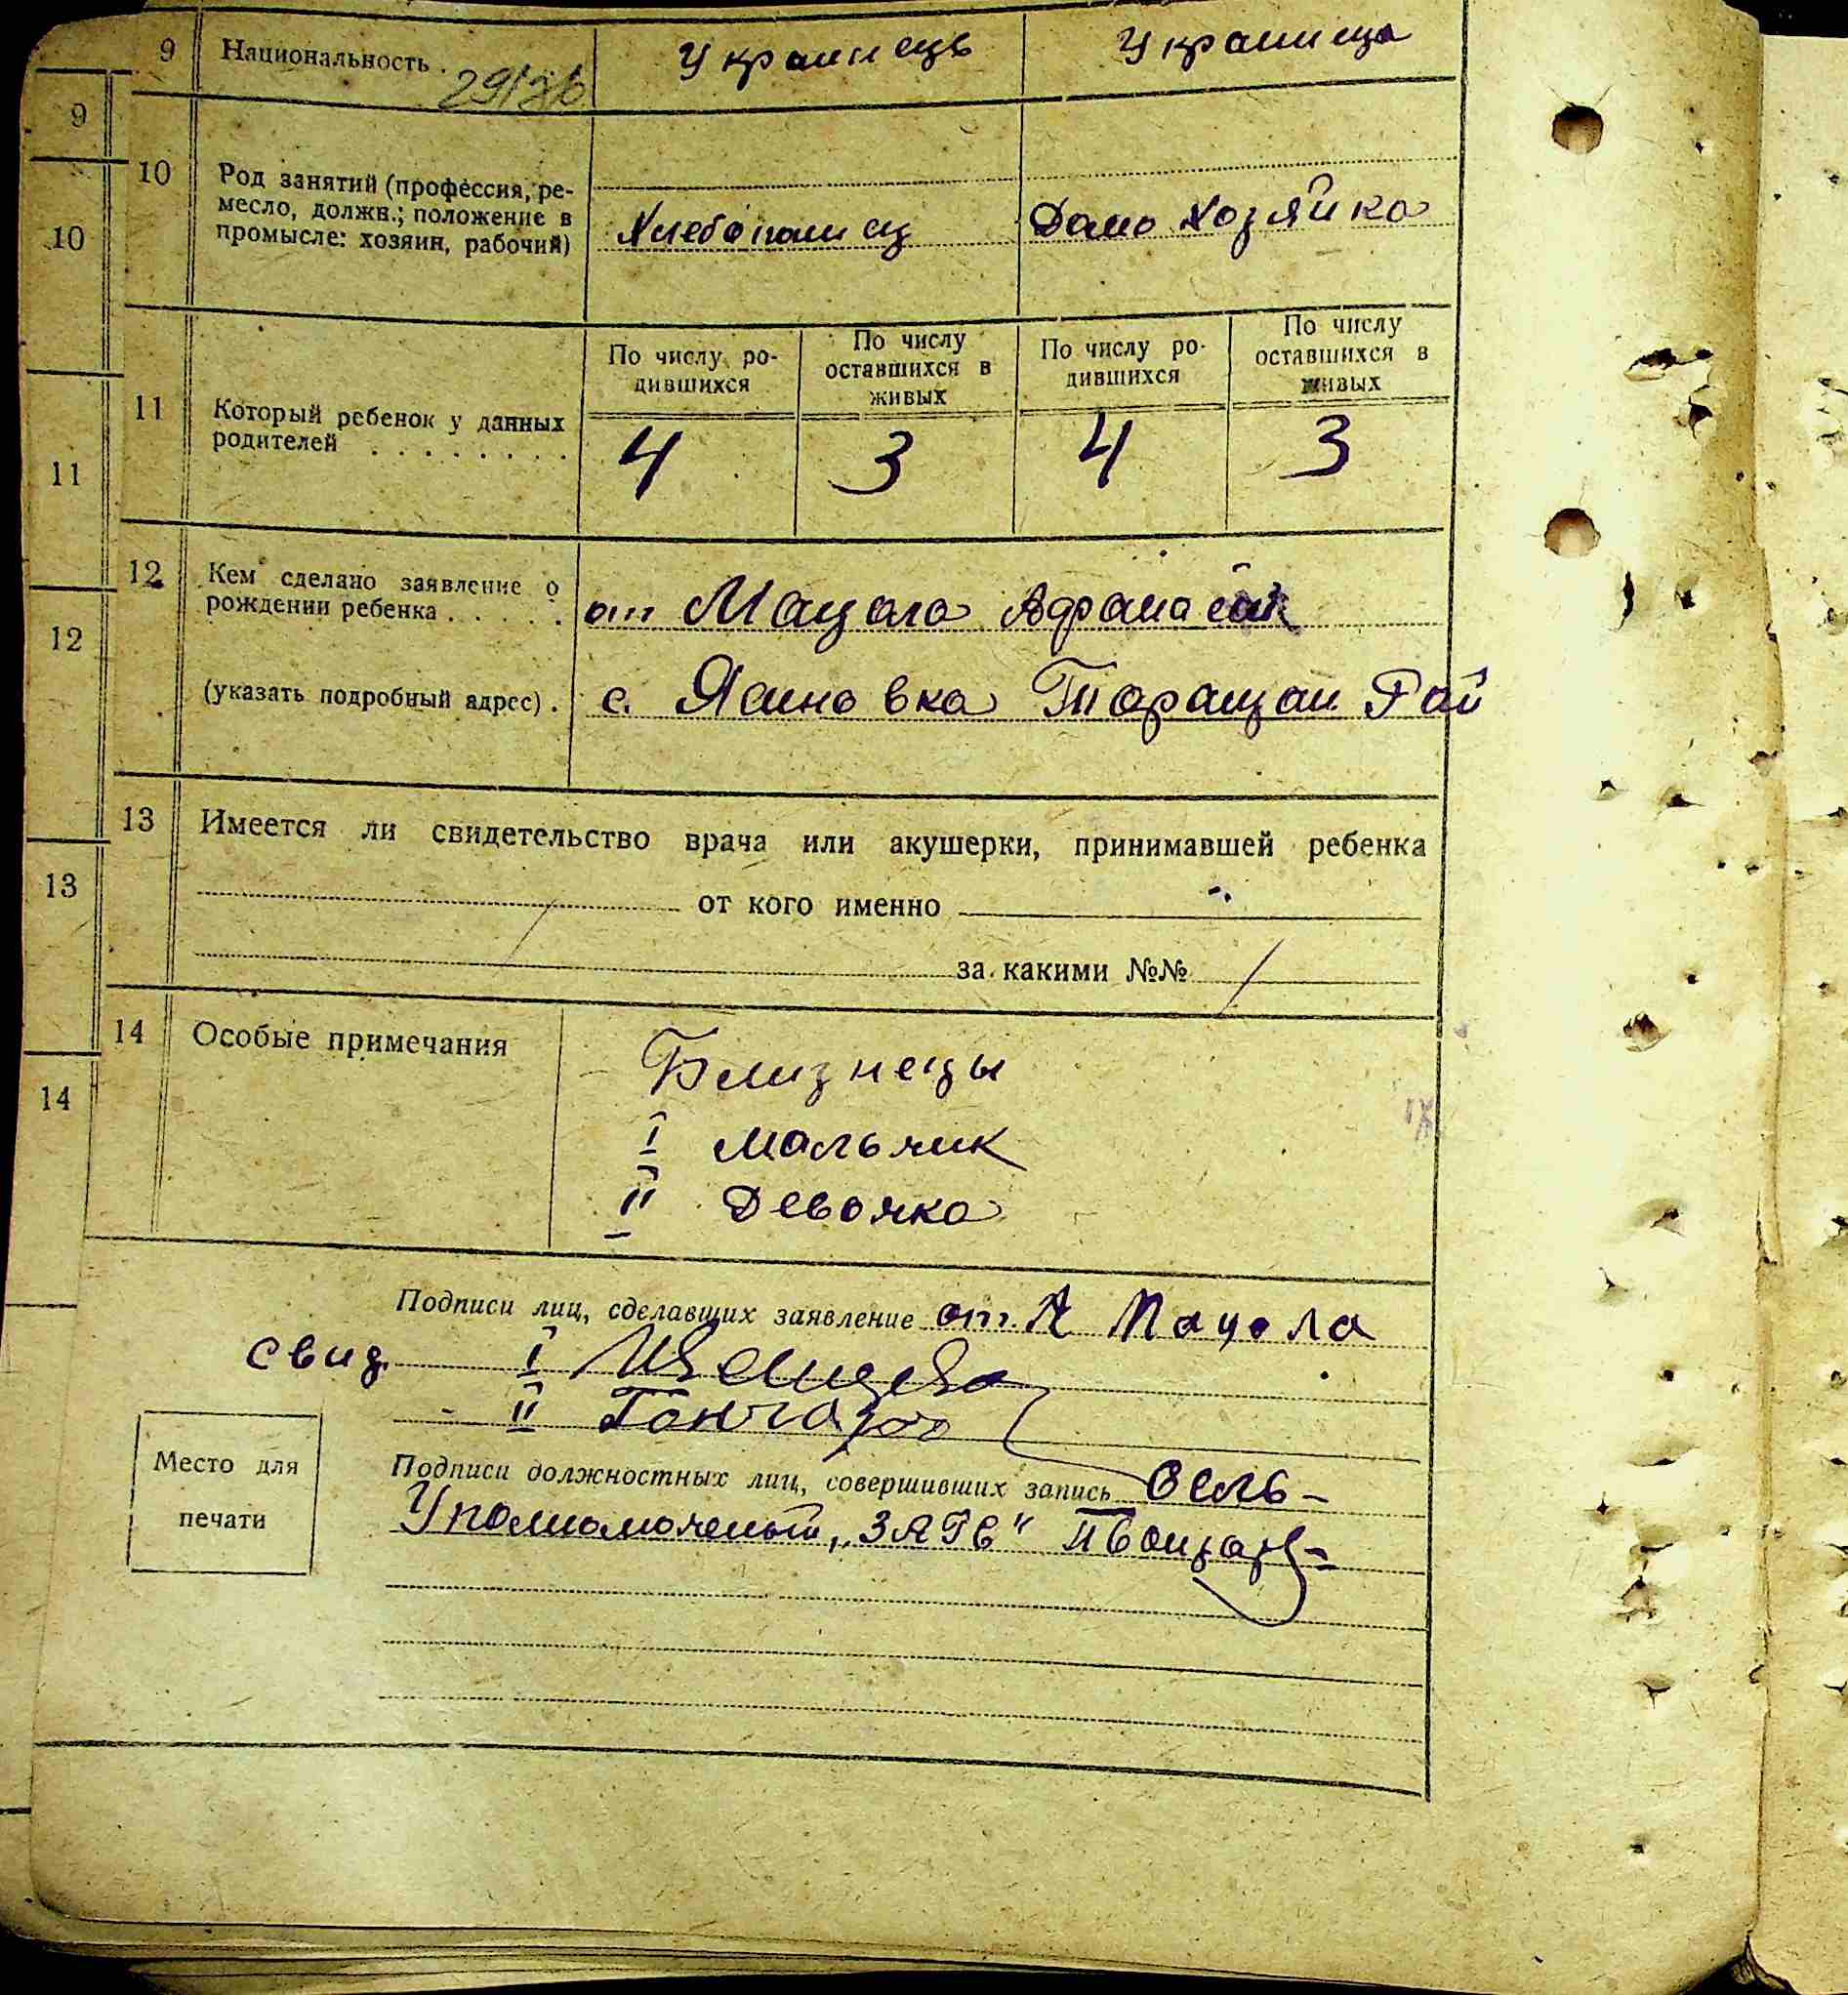 9 Национальность . Украинець Украинца
9
10 Род занятий (профессия, ре-
месло, должн.; положение в
промысле: хозяин, рабочий) Хлебопашец Домо Хозяйка
10
По числу ро- По числу По числу ро- По числу
дившихся оставшихся в дившихся оставшихся в
живых живых
11 Который ребенок у данных
родителей . . . . . . . . 4 3 4 3
11
12 Кем сделано заявление о
рождении ребенка . . . . . от Мацола Афанасий
12
(указать подробный адрес) . с. Ясиновка Таращан Рай
13 Имеется ли свидетельство врача или акушерки, принимавшей ребенка
13
от кого именно
за какими №№
14 Особые примечания
Близнецы
14
I мальчик
II Девочка
Подписи лиц, сделавших заявление от. А Мацола
свид. I
II Гончар
Место для
печати
Подписи должностных лиц, совершивших запись Сель-
Уполномоченый „ЗАГС"